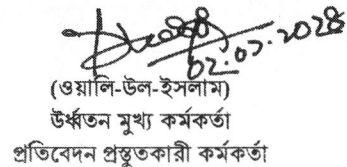 ০২.০২.২০২৪
(ওয়ালি-উল-ইসলাম)
উর্ধ্বতন মুখ্য কর্মকর্তা
প্রতিবেদন প্রস্তুতকারী কর্মকর্তা